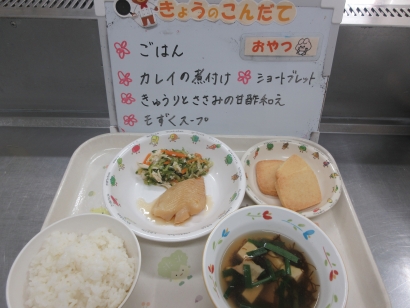 きょうのこんだて
ごはん
おやつ
カレイの煮付け
ショートブレット
きゅうりとささみの甘酢和え
もずくスープ